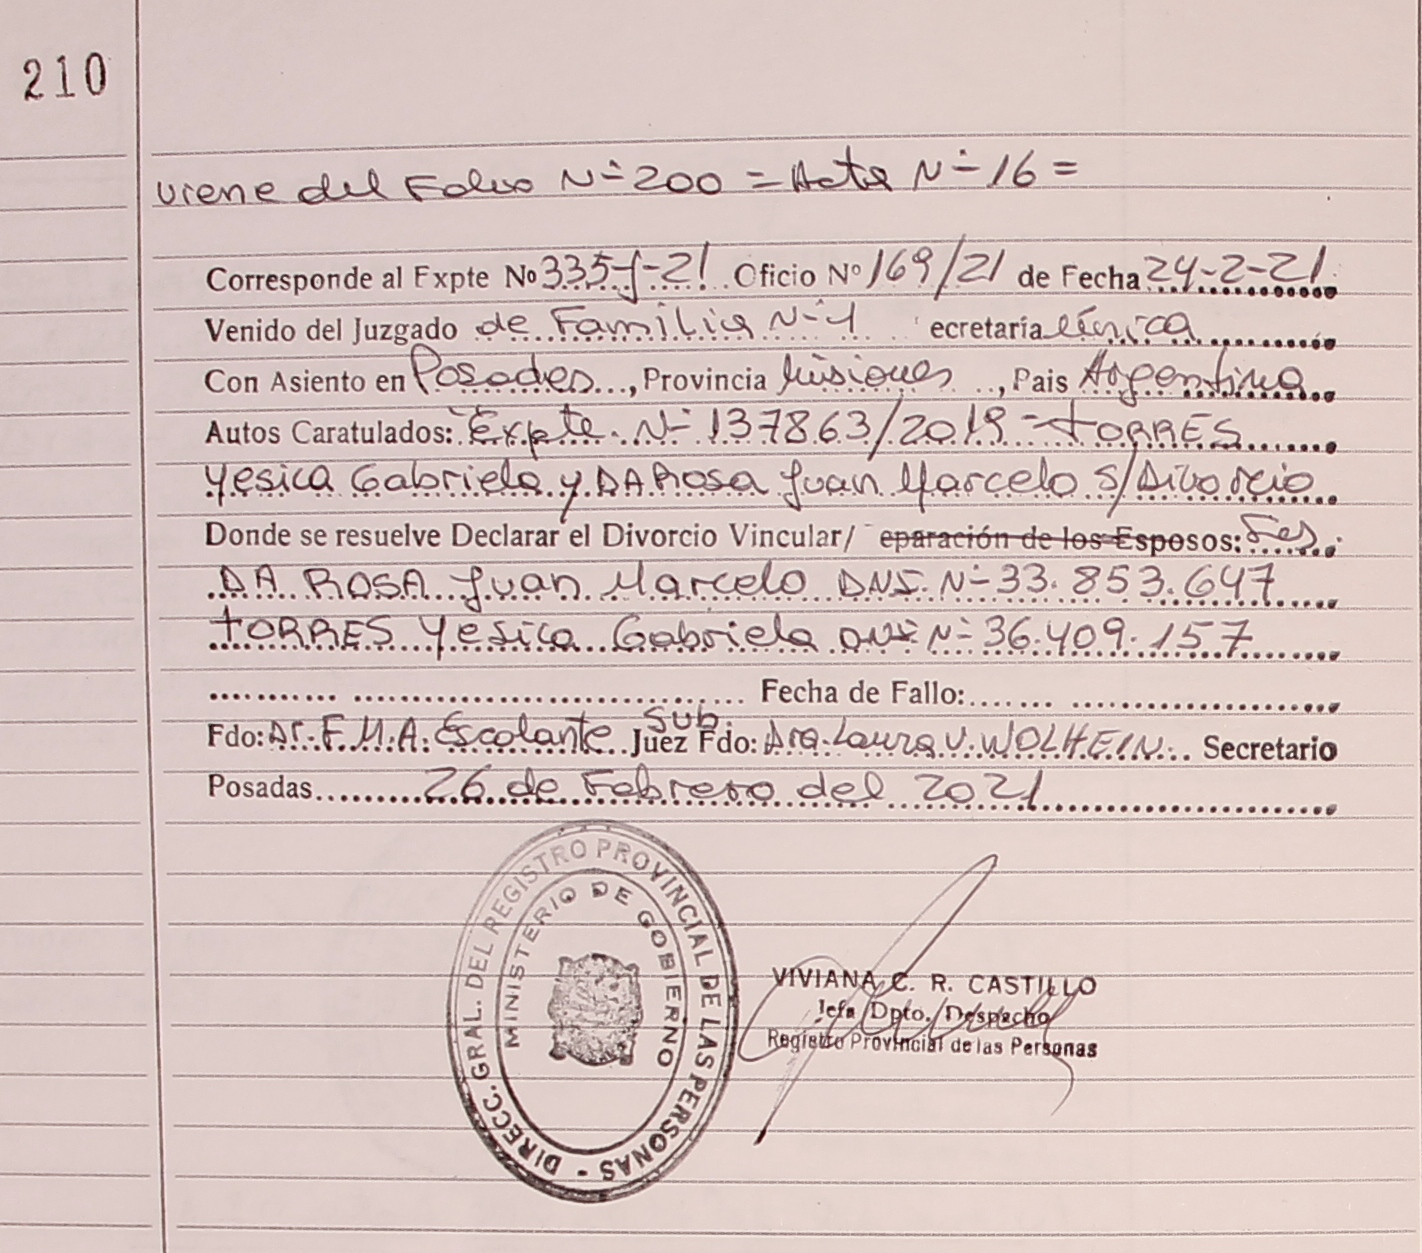 210
viene del Folio Nº 200 = Acta Nº 16 =
Corresponde al Expte Nº 335-J-21 Oficio Nº 169/21 de Fecha 24-2-21
Venido del Juzgado de Familia Nº 1 ecretaría única
Con Asiento en Posadas, Provincia Misiones, Pais Argentina
Autos Caratulados: Expte. Nº 137863/2019 - TORRES
Yesica Gabriela y DA Rosa Juan Marcelo S/Divorcio
Donde se resuelve Declarar el Divorcio Vincular/ eparación de los Esposos:
DA ROSA Juan Marcelo DNI Nº 33.853.647
TORRES Yesica Gabriela DNI Nº 36.409.157
Fecha de Fallo:
Sub.
Fdo: Dr. F.M.A. Escalante Juez Fdo: Dra. Laura V. WOLHEIN Secretario
Posadas 26 de Febrero del 2021
DIRECC. GRAL. DEL REGISTRO PROVINCIAL DE LAS PERSONAS -
MINISTERIO DE GOBIERNO
VIVIANA C. R. CASTILLO
Jefa Dpto. Despacho
Registro Provincial de las Personas